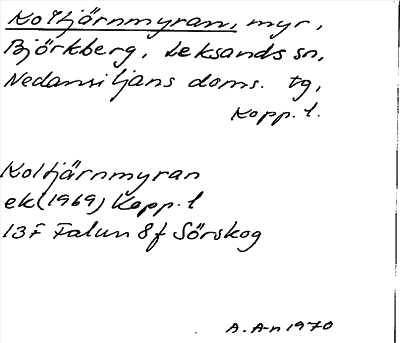 Koltjärnmyran, myr,
Björkberg, Leksands sn,
Nedansiljans doms. tg,
Kopp. l.
Koltjärnmyran
ek (1969) Kopp. l
13F Falun 8f Sörskog
A. A-n 1970